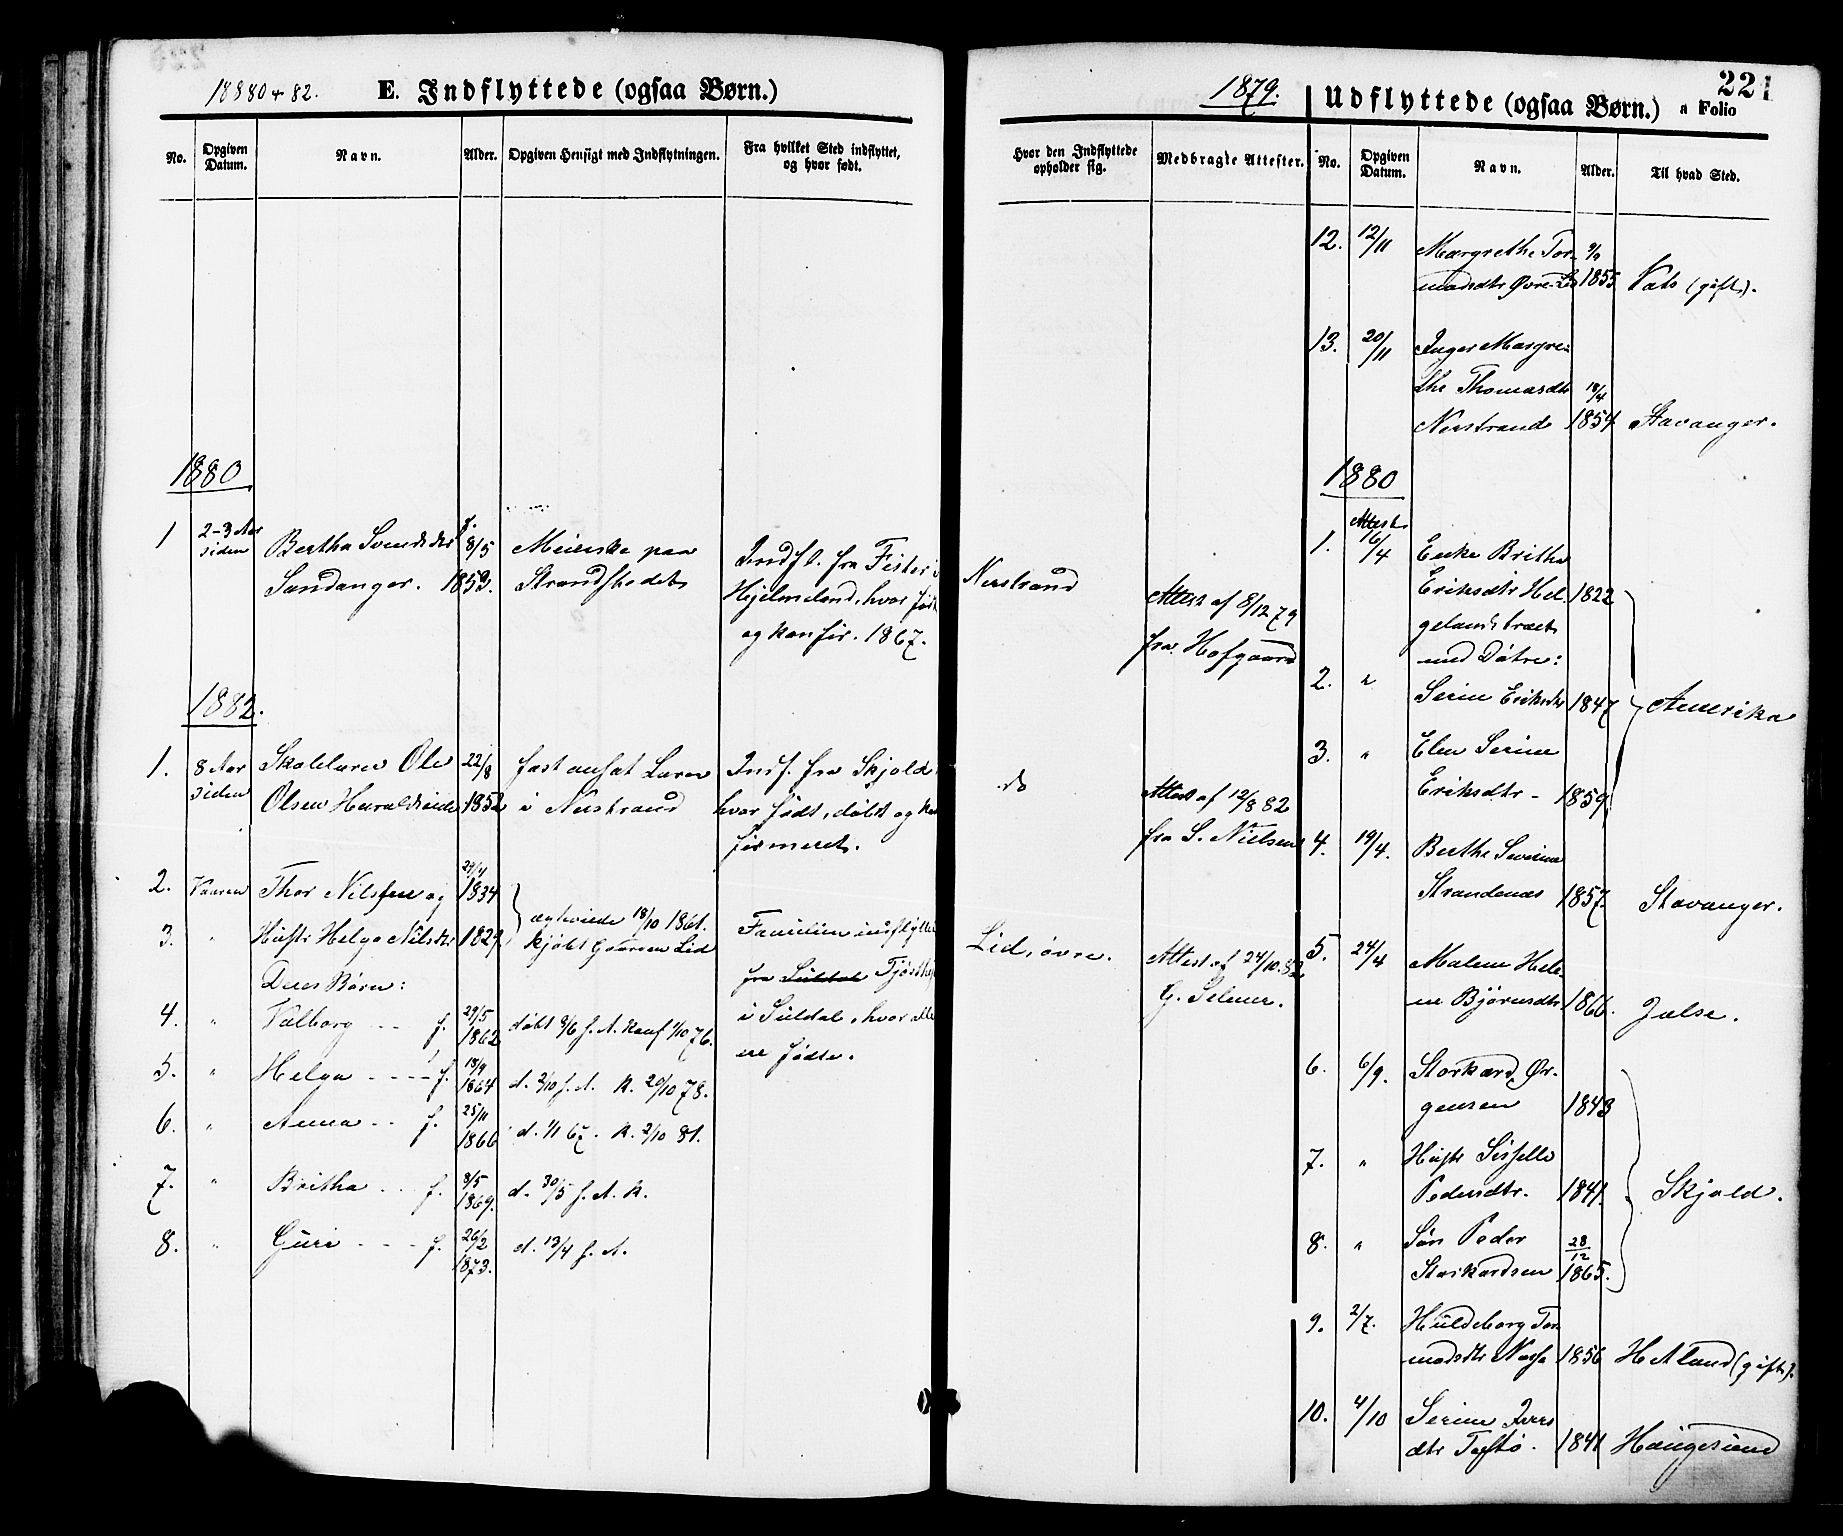 18880 + 82. E. Indflyttede (ogsaa Børn.)
No. Opgiven Datum. Navn. Alder. Opgiven Hensigt med Indflytningen. Fra hvilket Sted indflyttet, og hvor født.
1880
1 2-3 Aar siden Bertha Svendsdtr f. 8/5 Meierske paa Indfl. fra Fister i
Sandanger. 1853. Strandstedet Hjelmeland, hvor født
og konfir. 1867.
1882.
1. 8 Aar siden Skolelærer Ole 22/8 fast ansat Lærer Indf. fra Skjold
Olsen Haraldseide 1852 i Nerstrand hvor født, døbt og kon
firmeret.
2. Vaaren Thor Nilssen og 29/4 1834
ægteviede 18/10 1861.
3. " Hustr Helga Nilsdtr 1829. kjøbt Gaarden Lid Familien indflyttet
Deres Børn: fra Suldal
4. " Valborg - - - f. 29/5 1862 døbt 9/6 f. A. Konf 1/10 76. i Suldal, hvor alle
ere fødte.
5. " Helga - - - - f. 18/9 1864 d. 2/10 f. A. K. 20/10 78.
6. " Anna - - f. 25/11 1866 d. 1/1 67. K. 2/10 81.
7. " Britha - - - f. 8/5 1869. d. 30/5 f. A. K.
8. " Guri - - - - f. 26/2 1873. d. 13/4 f. A.
1879. Udflyttede (ogsaa Børn.) a Folio
221
Hvor den Indflyttede opholder sig. Medbragte Attester. No. Opgiven Datum. Navn. Alder. Til hvad Sted.
12. 12/11 Margrethe Tor-
madsdtr Øvre-Lid 1855 Vats (gift).
13. 20/11 Inger Margre-
the Thomasdtr 18/4
Nerstrand 1854 Stavanger.
1880
Attest
1. 6/4 Enke Britha
Nerstrand Attest af 8/12 79 Eriksdtr Hel- 1822
gelandstræet
fra Hofgaard med Døtre:
2. " Serine Eriksdtr 1847 Amerika
3. " Elen Serine
Eriksdtr - 1859
do Attest af 12/8 82
fra S. Nielsen
4. 19/4. Berthe Severine
Strandenæs 1857. Stavanger.
Lid, øvre. Attest af 24/10.82
G. Selmer.
5. 24/4 Malene Hele-
ne Bjørnsdtr 1866. Jælse.
6. 6/9. Storkard Ør-
gensen 1843
7. " Hustr Sissele
Pedersdtr. 1841. Skjold.
8. " Søn Peder 28/12
Storkardsen 1865.
9. 2/7. Huldeborg Tor-
madsdtr Næsse 1856 Hetland (gift).
10. 4/10 Serine Ivers
dtr Toftø. 1841 Haugesund